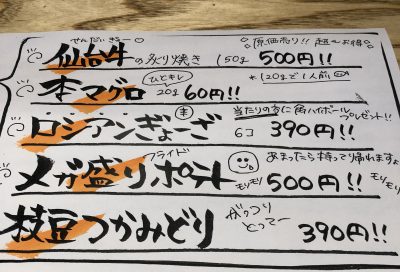 せんだいぎゅー
原価売り!! 超〜お得
仙台牛の炙り焼き 150g 500円!!
*120gで1人前
本マグロ ひとキレ 20g 60円!!
当たりの方に角ハイボール
プレゼント!!
ロシアンぎょーざ 6コ 390円!!
フライド
あまったら持って帰れますよ
メガ盛りポテト モリモリ 500円!! モリモリ
枝豆つかみどり がっつりとってー 390円!!